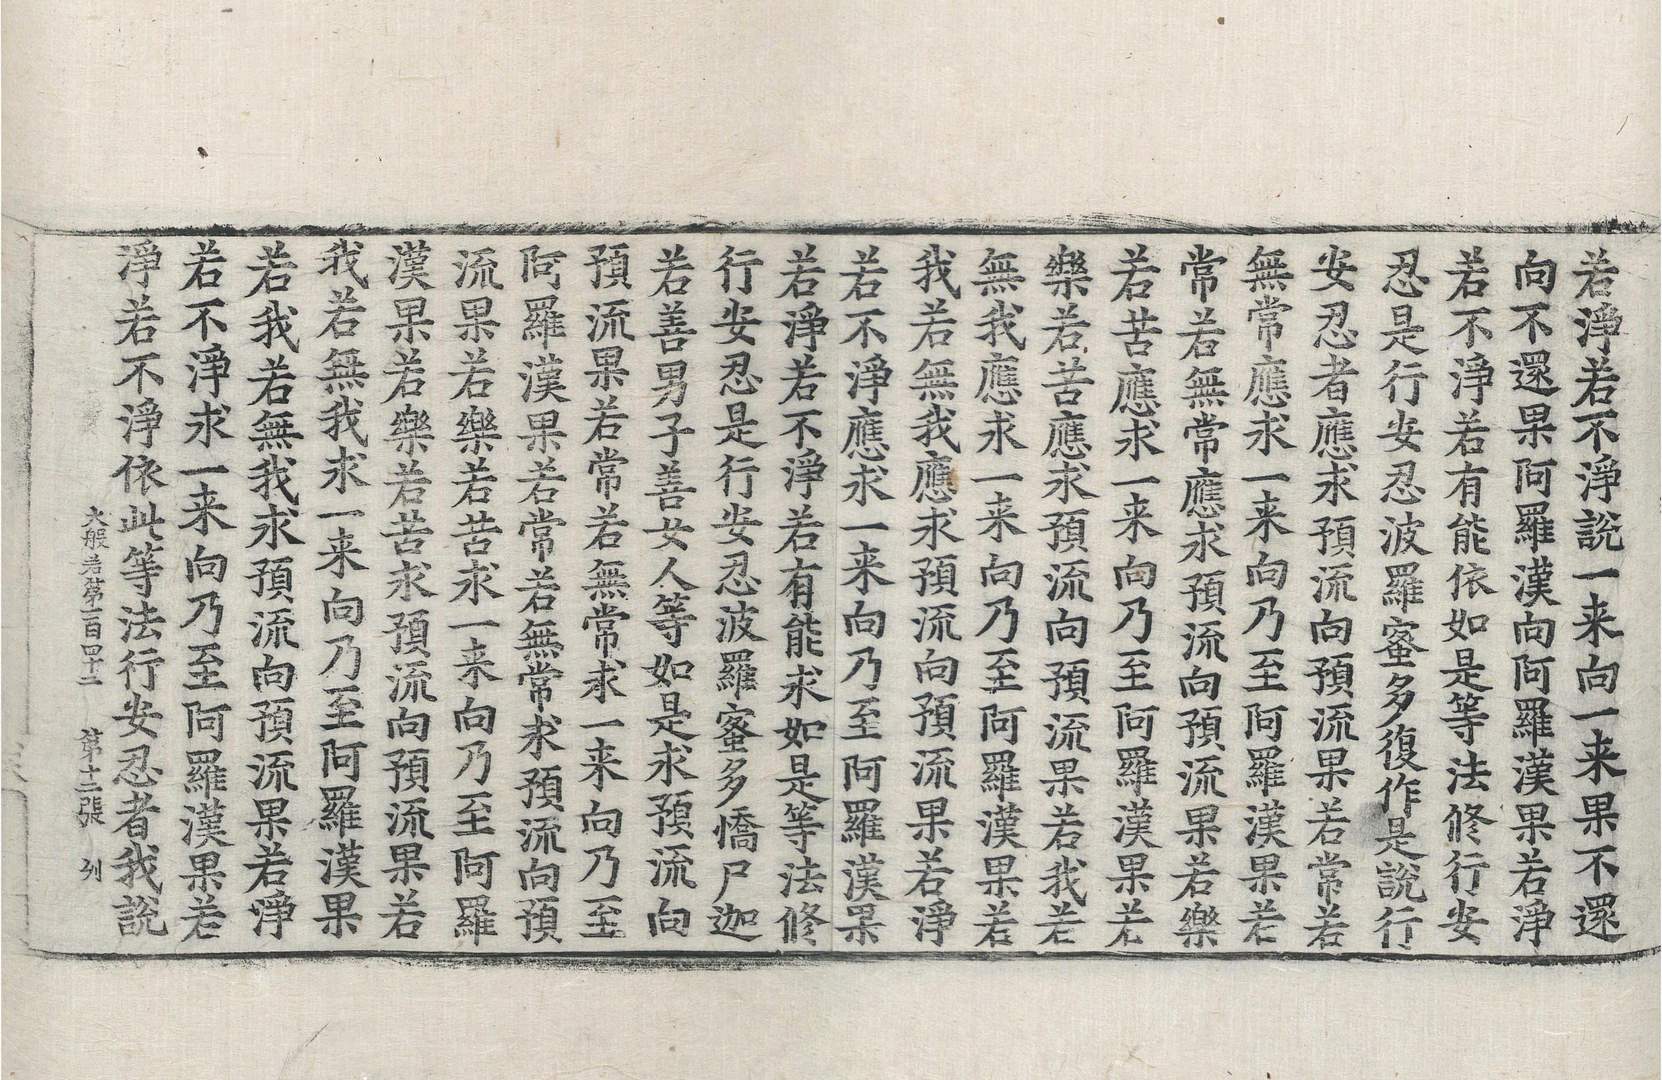 若淨若不淨說一来向一来果不還
向不還果阿羅漢向阿羅漢果若淨
若不淨若有能依如是等法修行安
忍是行安忍波羅蜜多復作是說行
安忍者應求預流向預流果若常若
無常應求一来向乃至阿羅漢果若
常若無常應求預流向預流果若樂
若苦應求一来向乃至阿羅漢果若
樂若苦應求預流向預流果若我若
無我應求一来向乃至阿羅漢果若
我若無我應求預流向預流果若淨
若不淨應求一来向乃至阿羅漢果
若淨若不淨若有能求如是等法修
行安忍是行安忍波羅蜜多憍尸迦
若善男子善女人等如是求預流向
預流果若常若無常求一来向乃至
阿羅漢果若常若無常求預流向預
流果若樂若苦求一来向乃至阿羅
漢果若樂若苦求預流向預流果若
我若無我求一来向乃至阿羅漢果
若我若無我求預流向預流果若淨
若不淨求一来向乃至阿羅漢果若
淨若不淨依此等法行安忍者我說
大般若第一百四十二 第十二張 列